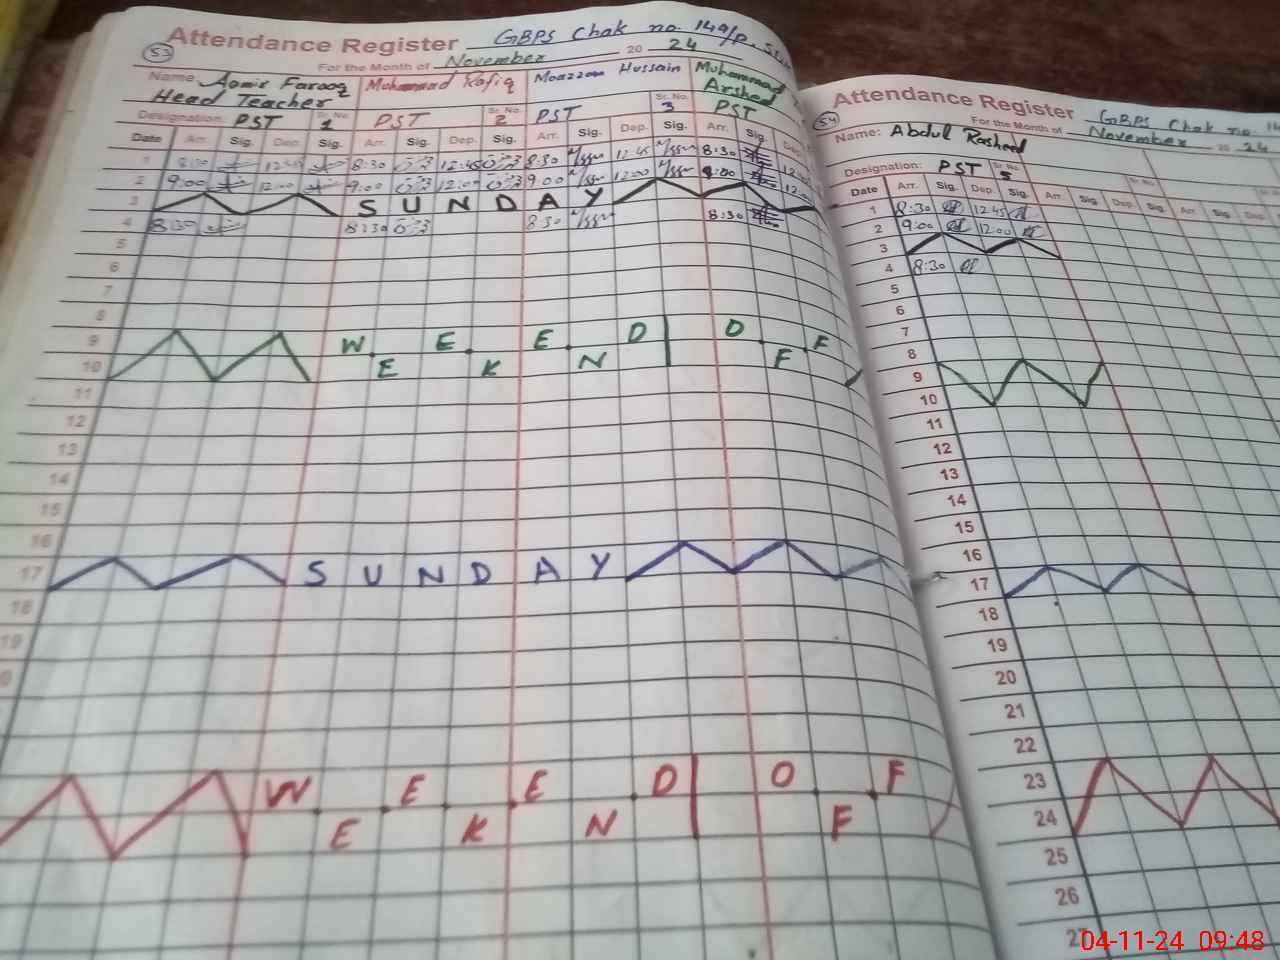 53
Attendance Register GBPS Chak no. 149/P.
For the Month of November 20 24
Name: Aamir Farooq Muhammad Rafiq Moazzam Hussain Muhammad
Head Teacher Arshad
Designation: PST Sr. No. 1 PST Sr. No. 2 PST Sr. No. 3 PST
Date Arr. Sig. Dep. Sig. Arr. Sig. Dep. Sig. Arr. Sig. Dep. Sig. Arr. Sig. Dep.
1 8:30 12:45 8:30 12:45 8:30 12:45 8:30 12:45
2 9:00 12:00 9:00 12:00 9:00 12:00 9:00 12:00
3 SUNDAY
4 8:30 8:30 8:30 8:30
5
6
7
8
9 W E E D O F
10 E K N F
11
12
13
14
15
16
17 SUNDAY
18
19
0
W E E D O F
E K N F
54
Attendance Register GBPS Chak no. 14
For the Month of November 20 24
Name: Abdul Rasheed
Designation: PST Sr. No. 5 Sr. No.
Date Arr. Sig. Dep. Sig. Arr. Sig. Dep. Sig. Arr. Sig. Dep.
1 8:30 12:45
2 9:00 12:00
3
4 8:30
5
6
7
8
9
10
11
12
13
14
15
16
17
18
19
20
21
22
23
24
25
26
27
04-11-24 09:48